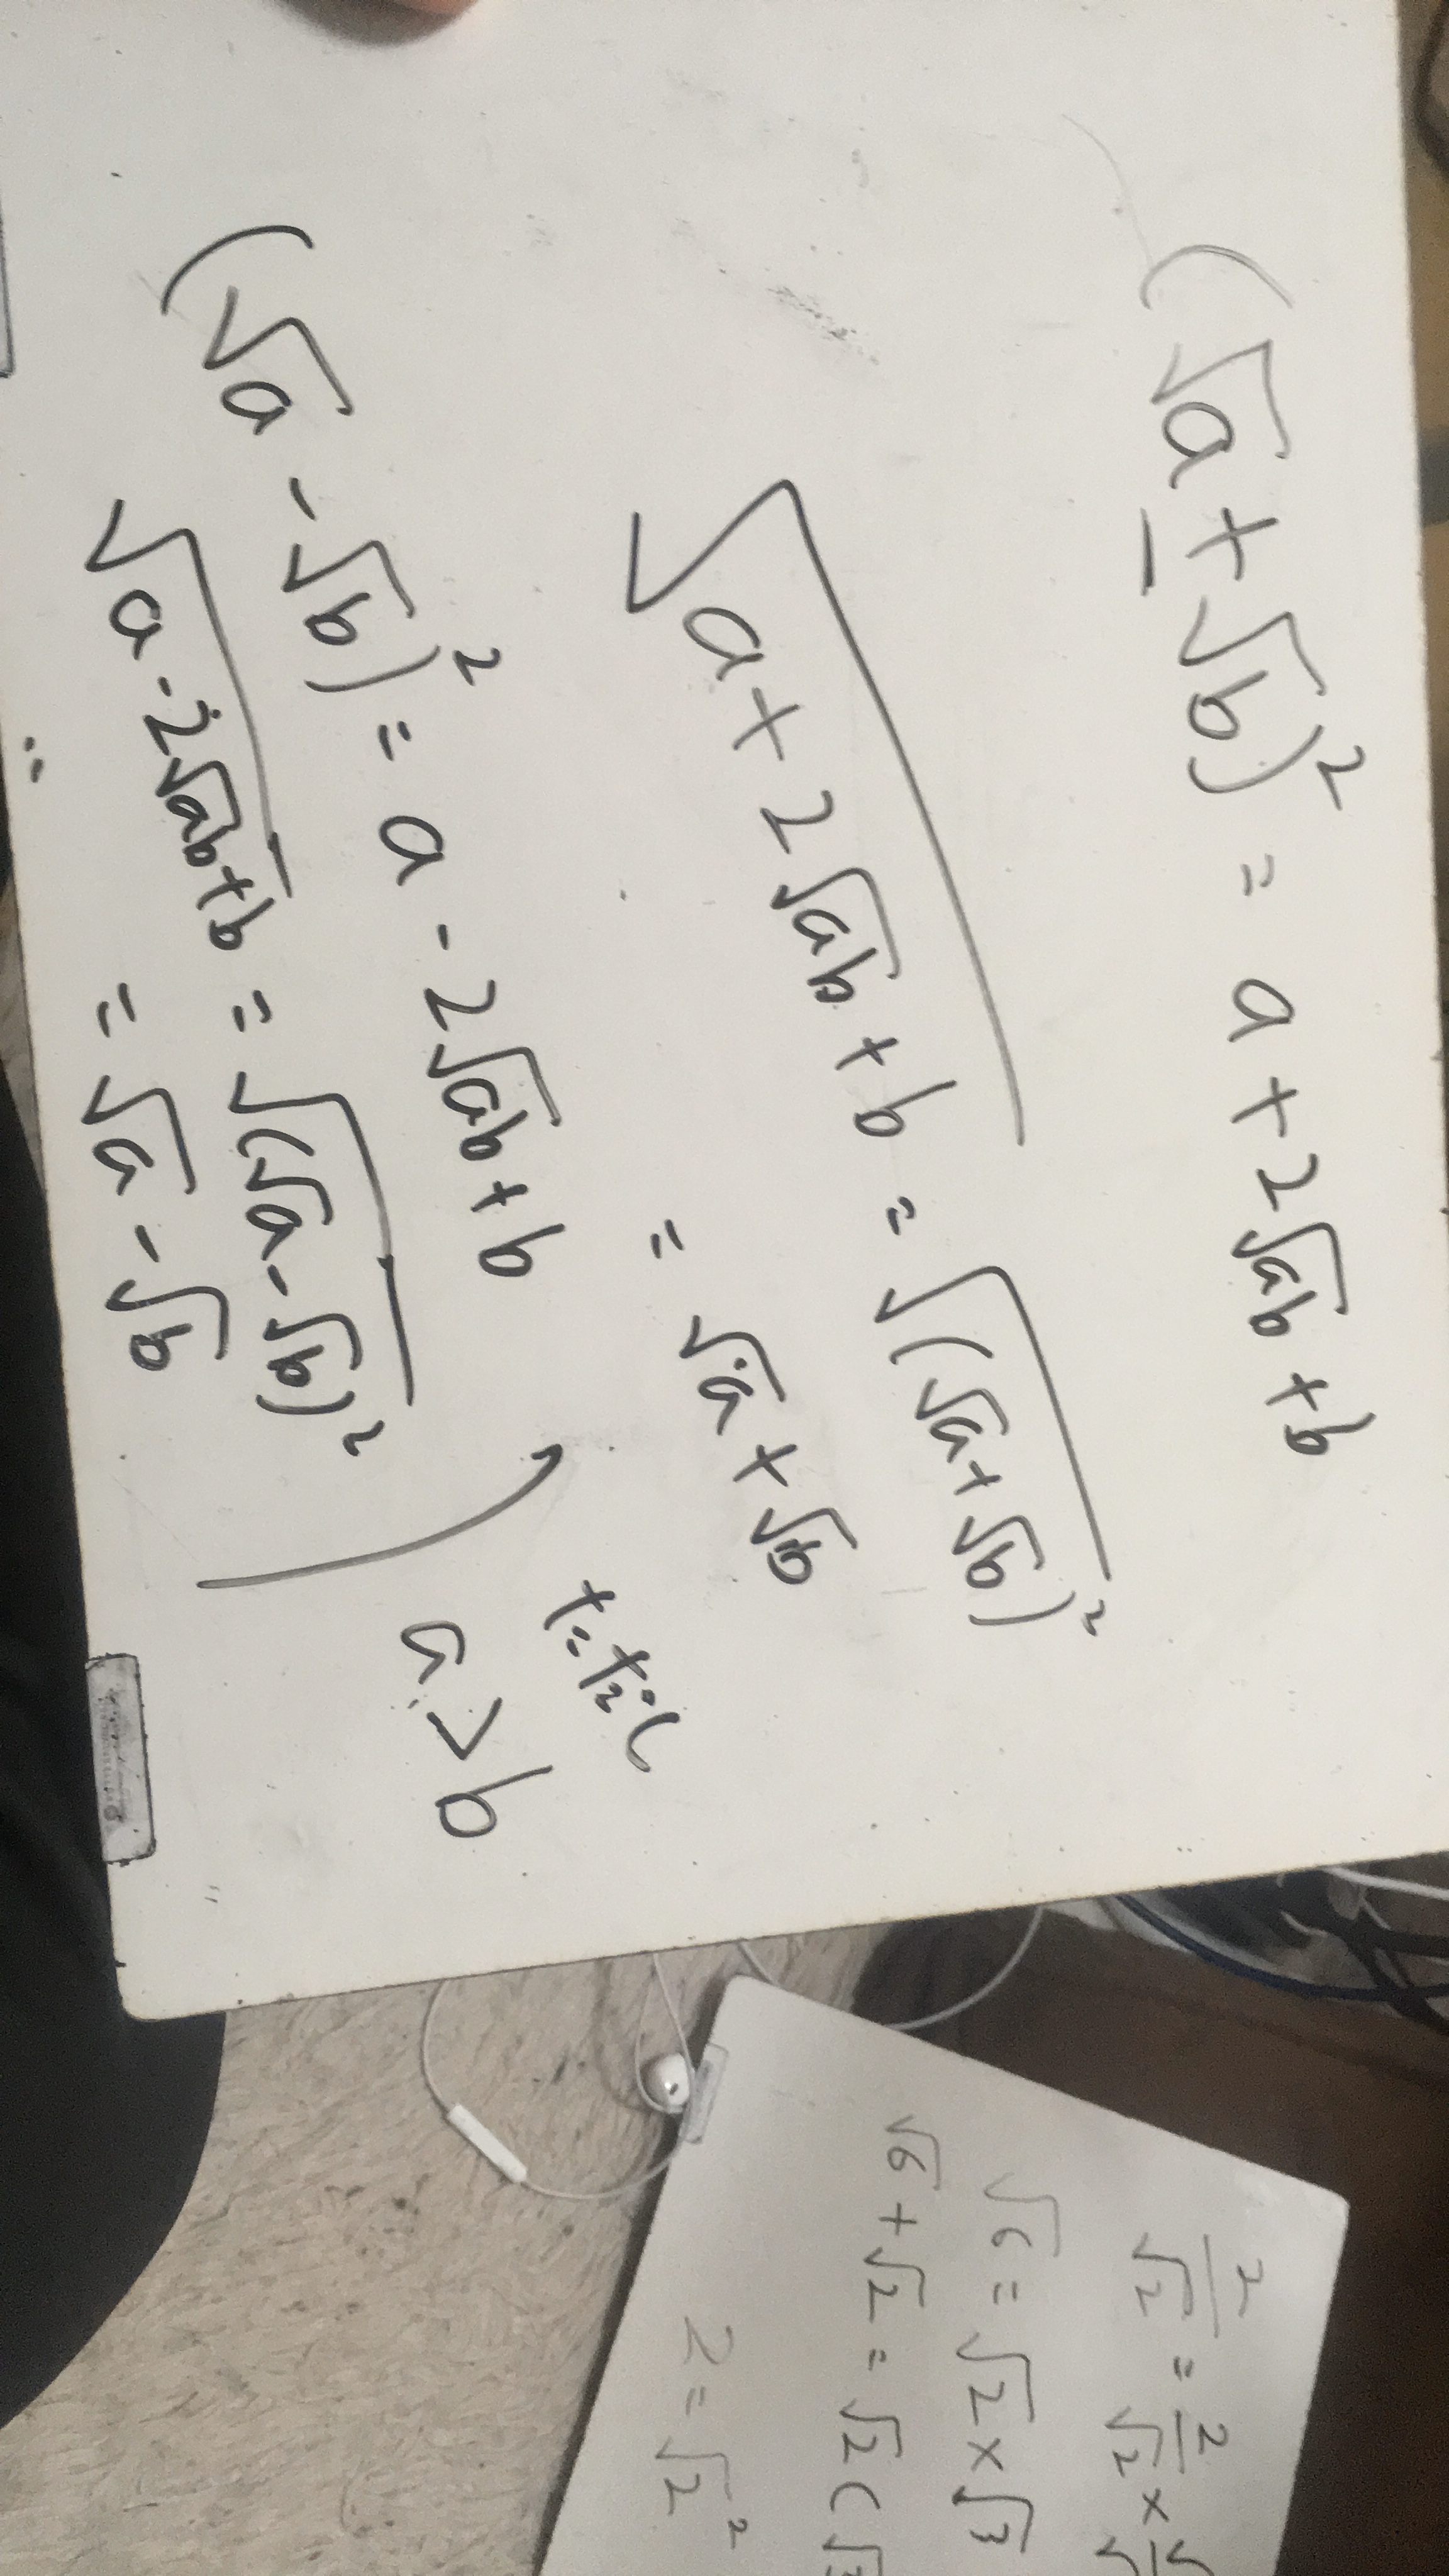 (√a + √b)² = a + 2√ab + b
√(a + 2√ab + b) = √(√a + √b)²
= √a + √b
(√a - √b)² = a - 2√ab + b
√(a - 2√ab + b) = √(√a - √b)²
= √a - √b
a > b
2/√2 = 2/√2 ×
√6 = √2 × √3
√6 + √2 = √2 (√3
2 = √2²